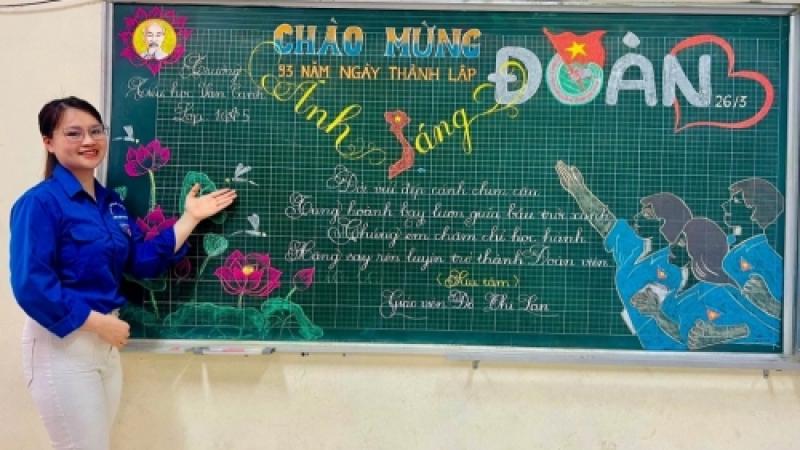 CHÀO MỪNG
93 NĂM NGÀY THÀNH LẬP
ĐOÀN
26/3
Trường
Tiểu học Vân Canh
Lớp
Ánh Sáng
Đôi vui đẹp cánh chim câu
Tung hoành bay lượn giữa bầu trời xanh
Chúng em chăm chỉ học hành
Hăng say rèn luyện trở thành Đoàn viên
(Sưu tầm)
Giáo viên Đỗ Thị Lan